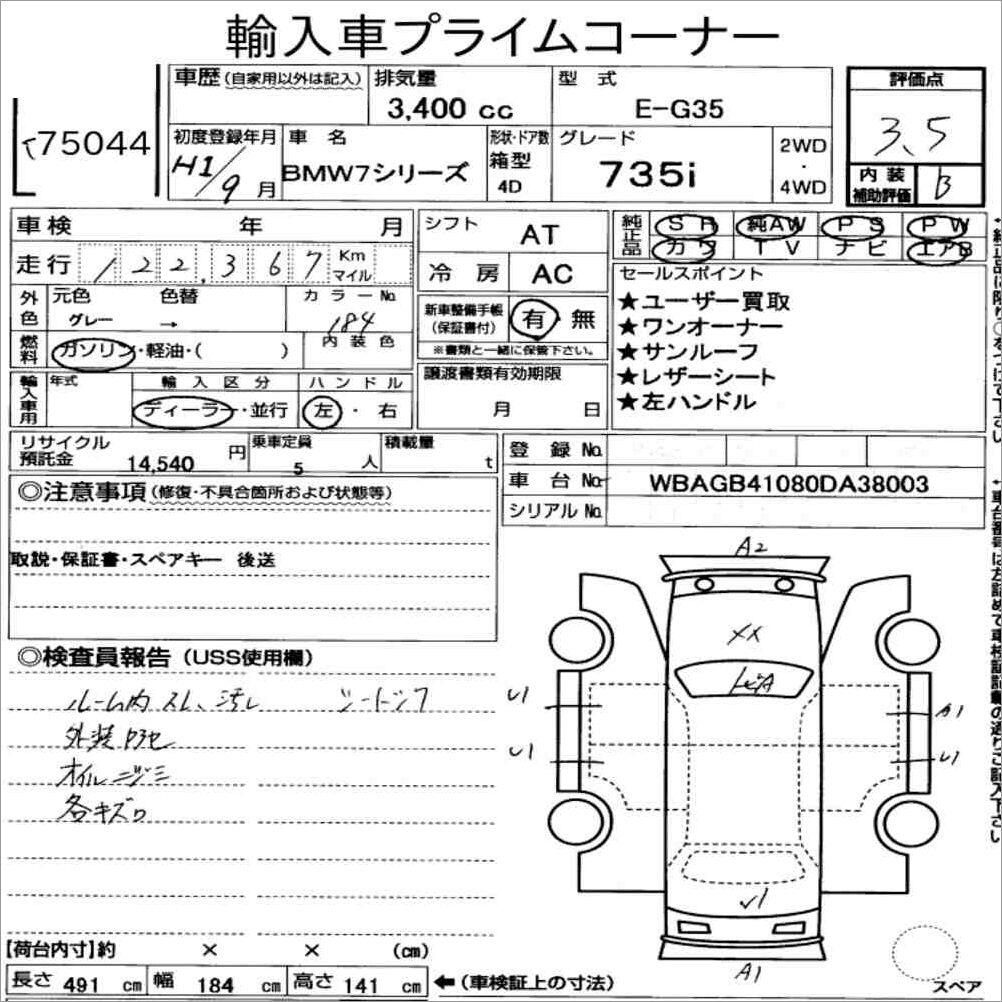 輸入車プライムコーナー
車歴 (自家用以外は記入)
排気量
3,400 cc
型式
E-G35
評価点
3.5
内装補助評価
B
75044
初度登録年月
H1/9月
車名
BMW7シリーズ
形状・ドア数
箱型
4D
グレード
735i
2WD
・
4WD
車検 年 月
シフト AT
純正品
SR 純AW PS PW
カワ TV ナビ エアB
走行 122,367 Km マイル
冷房 AC
セールスポイント
★ユーザー買取
★ワンオーナー
★サンルーフ
★レザーシート
★左ハンドル
外色
元色 色替
グレー →
カラーNo
184
新車整備手帳
(保証書付)
有・無
※書類と一緒に保管下さい。
燃料
ガソリン・軽油・( )
内装色
譲渡書類有効期限
月 日
輸入車用
年式
輸入区分
ディーラー・並行
ハンドル
左・右
リサイクル
預託金
14,540 円
乗車定員
5 人
積載量
t
登録No
車台No WBAGB41080DA38003
シリアルNo
◎注意事項 (修復・不具合箇所および状態等)
取説・保証書・スペアキー 後送
◎検査員報告 (USS使用欄)
ルーム内スレ、汚レ
オイルニジミ
各キズ
A2
XX
U1
U1
A1
U1
A1
【荷台内寸】約 × × (cm)
長さ 491 cm 幅 184 cm 高さ 141 cm ←(車検証上の寸法)
スペア